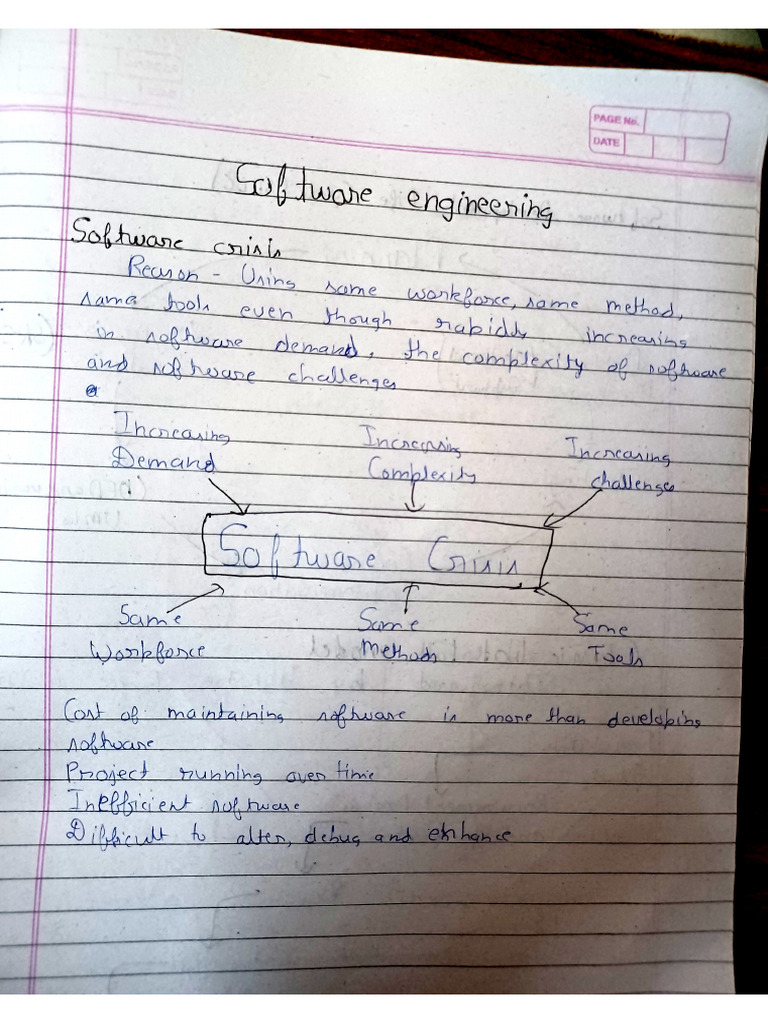 PAGE No.
DATE
Software engineering
Software crisis
Reason - Using same workforce, same method,
same tools even though rapidly increasing
in software demand, the complexity of software
and software challenges
Increasing Increasing Increasing
Demand Complexity challenges
Software Crisis
Same Same Same
Workforce Methods Tools
Cost of maintaining software is more than developing
software
Project running over time
Inefficient software
Difficult to alter, debug and enhance